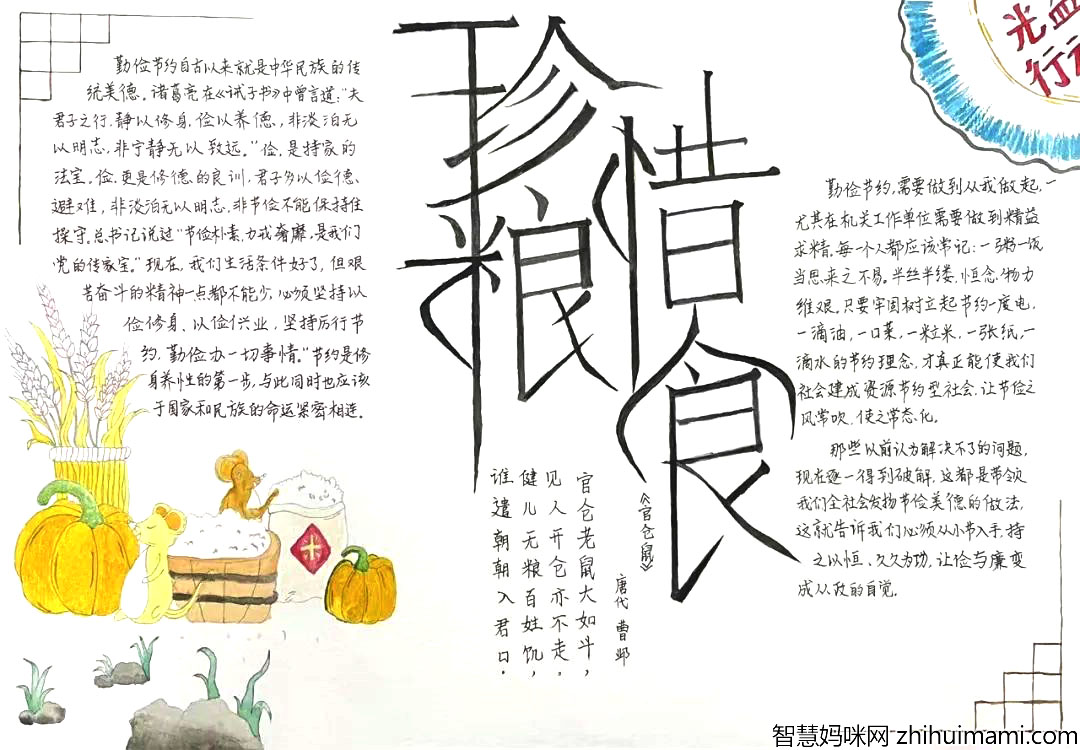 勤俭节约自古以来就是中华民族的传
统美德。诸葛亮在《诫子书》中曾言道:“夫
君子之行,静以修身,俭以养德,非淡泊无
以明志,非宁静无以致远。”俭,是持家的
法宝。俭,更是修德的良训,君子多以俭德、
避难,非淡泊无以明志,非节俭不能保持住
操守。总书记说过“节俭朴素,力戒奢靡,是我们
党的传家宝。”现在,我们生活条件好了,但艰
苦奋斗的精神一点都不能少,必须坚持以
俭修身、以俭兴业,坚持厉行节
约,勤俭办一切事情。”节约是修
身养性的第一步,与此同时也应该
于国家和民族的命运紧密相连。
珍惜
粮食
官仓老鼠大如斗,
见人开仓亦不走。
健儿无粮百姓饥,
谁遣朝朝入君口。
《官仓鼠》
唐代 曹邺
光盘
行动
勤俭节约,需要做到从我做起,
尤其在机关工作单位需要做到精益
求精。每个人都应该常记:一粥一饭
当思来之不易。半丝半缕,恒念物力
维艰。只要牢固树立起节约一度电,
一滴油,一口菜,一粒米,一张纸,一
滴水的节约理念,才真正能使我们
社会建成资源节约型社会,让节俭之
风常吹,使之常态化。
那些以前认为解决不了的问题,
现在逐一得到破解,这都是带领
我们全社会发扬节俭美德的做法,
这就告诉我们必须从小节入手,持
之以恒、久久为功,让俭与廉变
成从政的自觉。
智慧妈咪网 zhihuimami.com